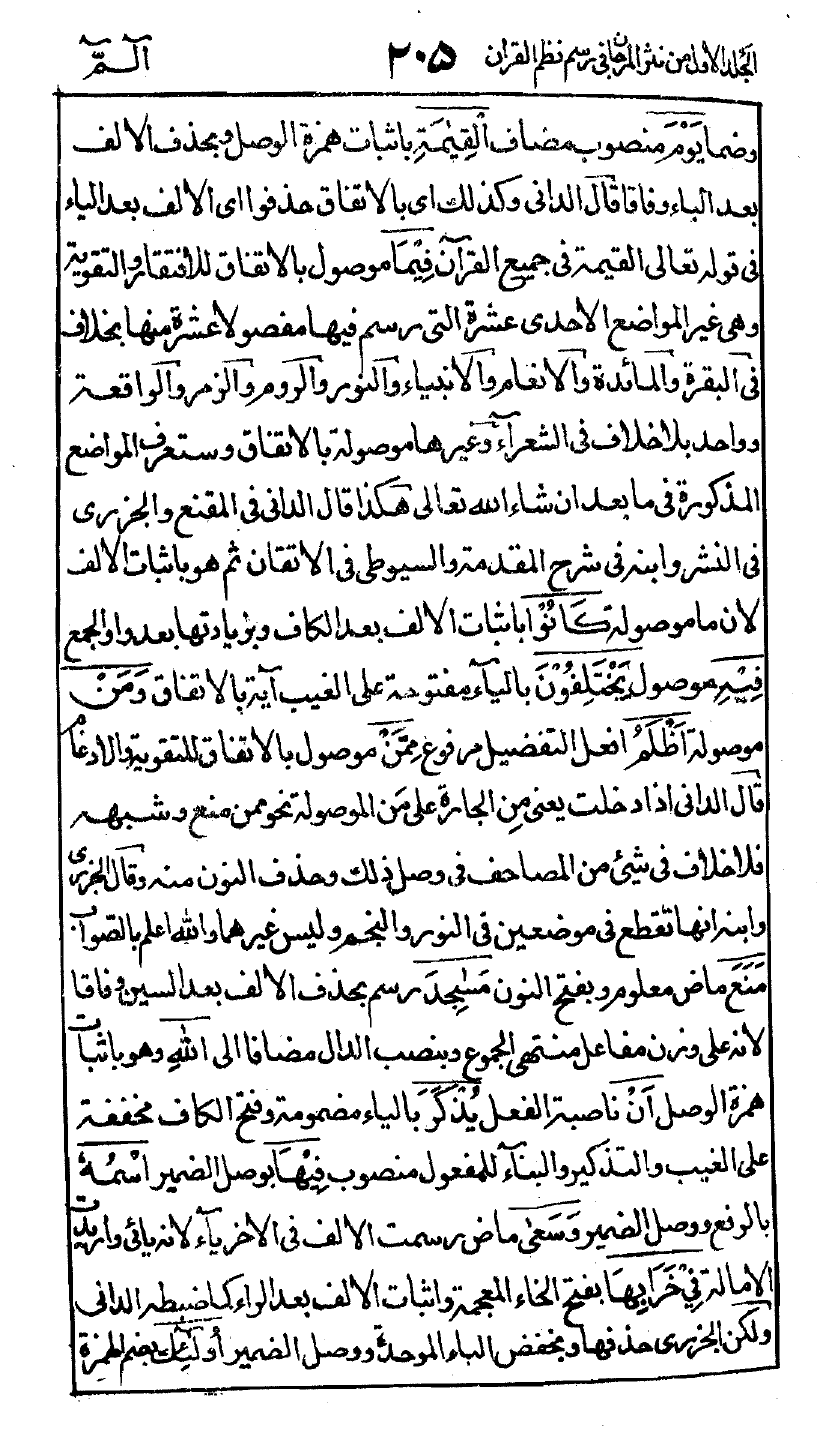 المجلد الاول من نثر المرجان في رسم نظم القران ٢٠٥ آلٓـمّٓ
وضما يَوْمَ منصوب مضاف اَلْقِيٰمَةِ باثبات همزة الوصل و بحذف الالف
بعد الياء وفاقا قال الداني وكذلك اي بالاتفاق حذفوا اى الالف بعد الياء
في قوله تعالى القيمة في جميع القرآن فِيْمَا موصول بالاتفاق للافتقار والتقوية
وهي غير المواضع الاحدى عشرة التى رسم فيها مفصولا عشرة منها بخلاف
فى البقرة والمائدة والانعام والانبياء والنور والروم والزمر والواقعة
وواحد بلا خلاف في الشعرآء وغيرها موصولة بالاتفاق وستعرف المواضع
المذكورة فى ما بعد ان شاء الله تعالى هكذا قال الدانى فى المقنع والجزرى
فى النشر وابنه فى شرح المقدمة والسيوطى فى الاتقان ثم هو باثبات الالف
لان ما موصولة كَانُوْا باثبات الالف بعد الكاف وبزيادتها بعد واو الجمع
فِيْهِ موصول يَخْتَلِفُوْنَ باليآء مفتوحة على الغيب آية بالاتفاق وَمَنْ
موصولة اَظْلَمُ افعل التفضيل مرفوع مِمَّنْ موصول بالاتفاق للتقوية والادغام
قال الدانى اذا دخلت يعنى مِن الجارة على مَن الموصولة نحو ممن منع وشبهه
فلا خلاف فى شيئ من المصاحف فى وصل ذلك وحذف النون منه وقال الجزرى
وابنه انها تقطع فى موضعين فى النور والنجم وليس غيرهما والله اعلم بالصواب
مَنَعَ ماض معلوم وبفتح النون مَسٰجِدَ رسم بحذف الالف بعد السين وفاقا
لانه على وزن مفاعل منتهى الجموع وبنصب الدال مضافا الى اللّٰهِ وهو باثبات
همزة الوصل اَنْ ناصبة الفعل يُّذْكَرَ بالياء مضمومة وفتح الكاف مخففة
على الغيب والتذكير والبنآء للمفعول منصوب فِيْهَا بوصل الضمير اسْمُهٗ
بالرفع ووصل الضمير وَسَعٰى ماض رسمت الالف فى الاخر يآء لانه يائى واريدت
الامالة فِيْ خَرَابِهَا بفتح الخاء المعجمة واثبات الالف بعد الراء كما ضبطه الدانى
ولكن الجزرى حذفها وبخفض الباء الموحدة ووصل الضمير اُولٰٓئِكَ بضم الهمزة